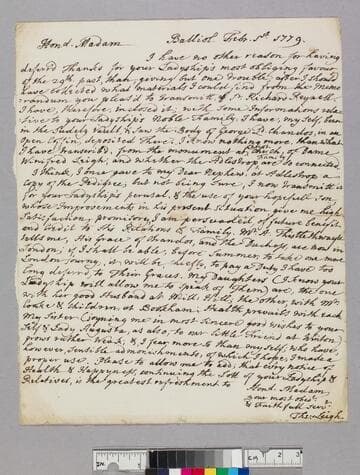 Hond. Madam Balliol Feb. 5th 1779.
I have no other reason for having
deferred Thanks for your Ladyship's most obliging favour
of the 29th past, than, giving but one Trouble, after I should
have collected what materials I could find from the Memo-
randum you pleas'd to transmit of Sr. Richard Reynell;
I have, therefore, inclosed it, with some Informations rela-
tive to your Ladyship's Noble Family. I have, my Self, been
in the Sudely Vault, & saw the Body of George Ld. Chandos, in an
open Coffin, deposited there; I know nothing more, than what
I have transcrib'd, from the monument at Church, of Dame
Winifred Leigh, and whether the Adlestrop Family are so connected,
I think, I once gave to my Dear Nephew, at Adlestrop a
copy of the Pedigree, but not being Sure, I now transmitt it
for your Ladyship's perusal, & the use of your hopefull Son,
whose Improvements in his present situation give me high
Satisfaction, promissory, I am persuaded, of future benefit,
and credit to His Relations & Family. Mr. Thistlethwayte
tells me, His Grace of Chandos, and the Dutchess, are now in
London; if, I shall be able, before Summer, to take one more
London Journey, it, will be chiefly, to pay a Duty I have too
long deferr'd, to Their Graces. My Daughters (I know your
Ladyship will allow me to speak of them) are, the one
with her good Husband at Mill Hill, the other, with Mr.
Cooke & children at Bookham. Health prevails with each
My Sister (Joyning me in most sincere good wishes to your
Self & Lady Augusta, as also, to our little Friend at Winton)
grows rather Weak, & I fear, more so than my self, who have
however, sensible admonishments, of which I hope, I make a
proper use. Please to allow me to add, that every notice of
Health & Happyness, continuing the Lott of your Ladyship &
Relatives, is the greatest refreshment to
Hond. Madam,
your most obedt.
& faithfull Servt.
The: Leigh.